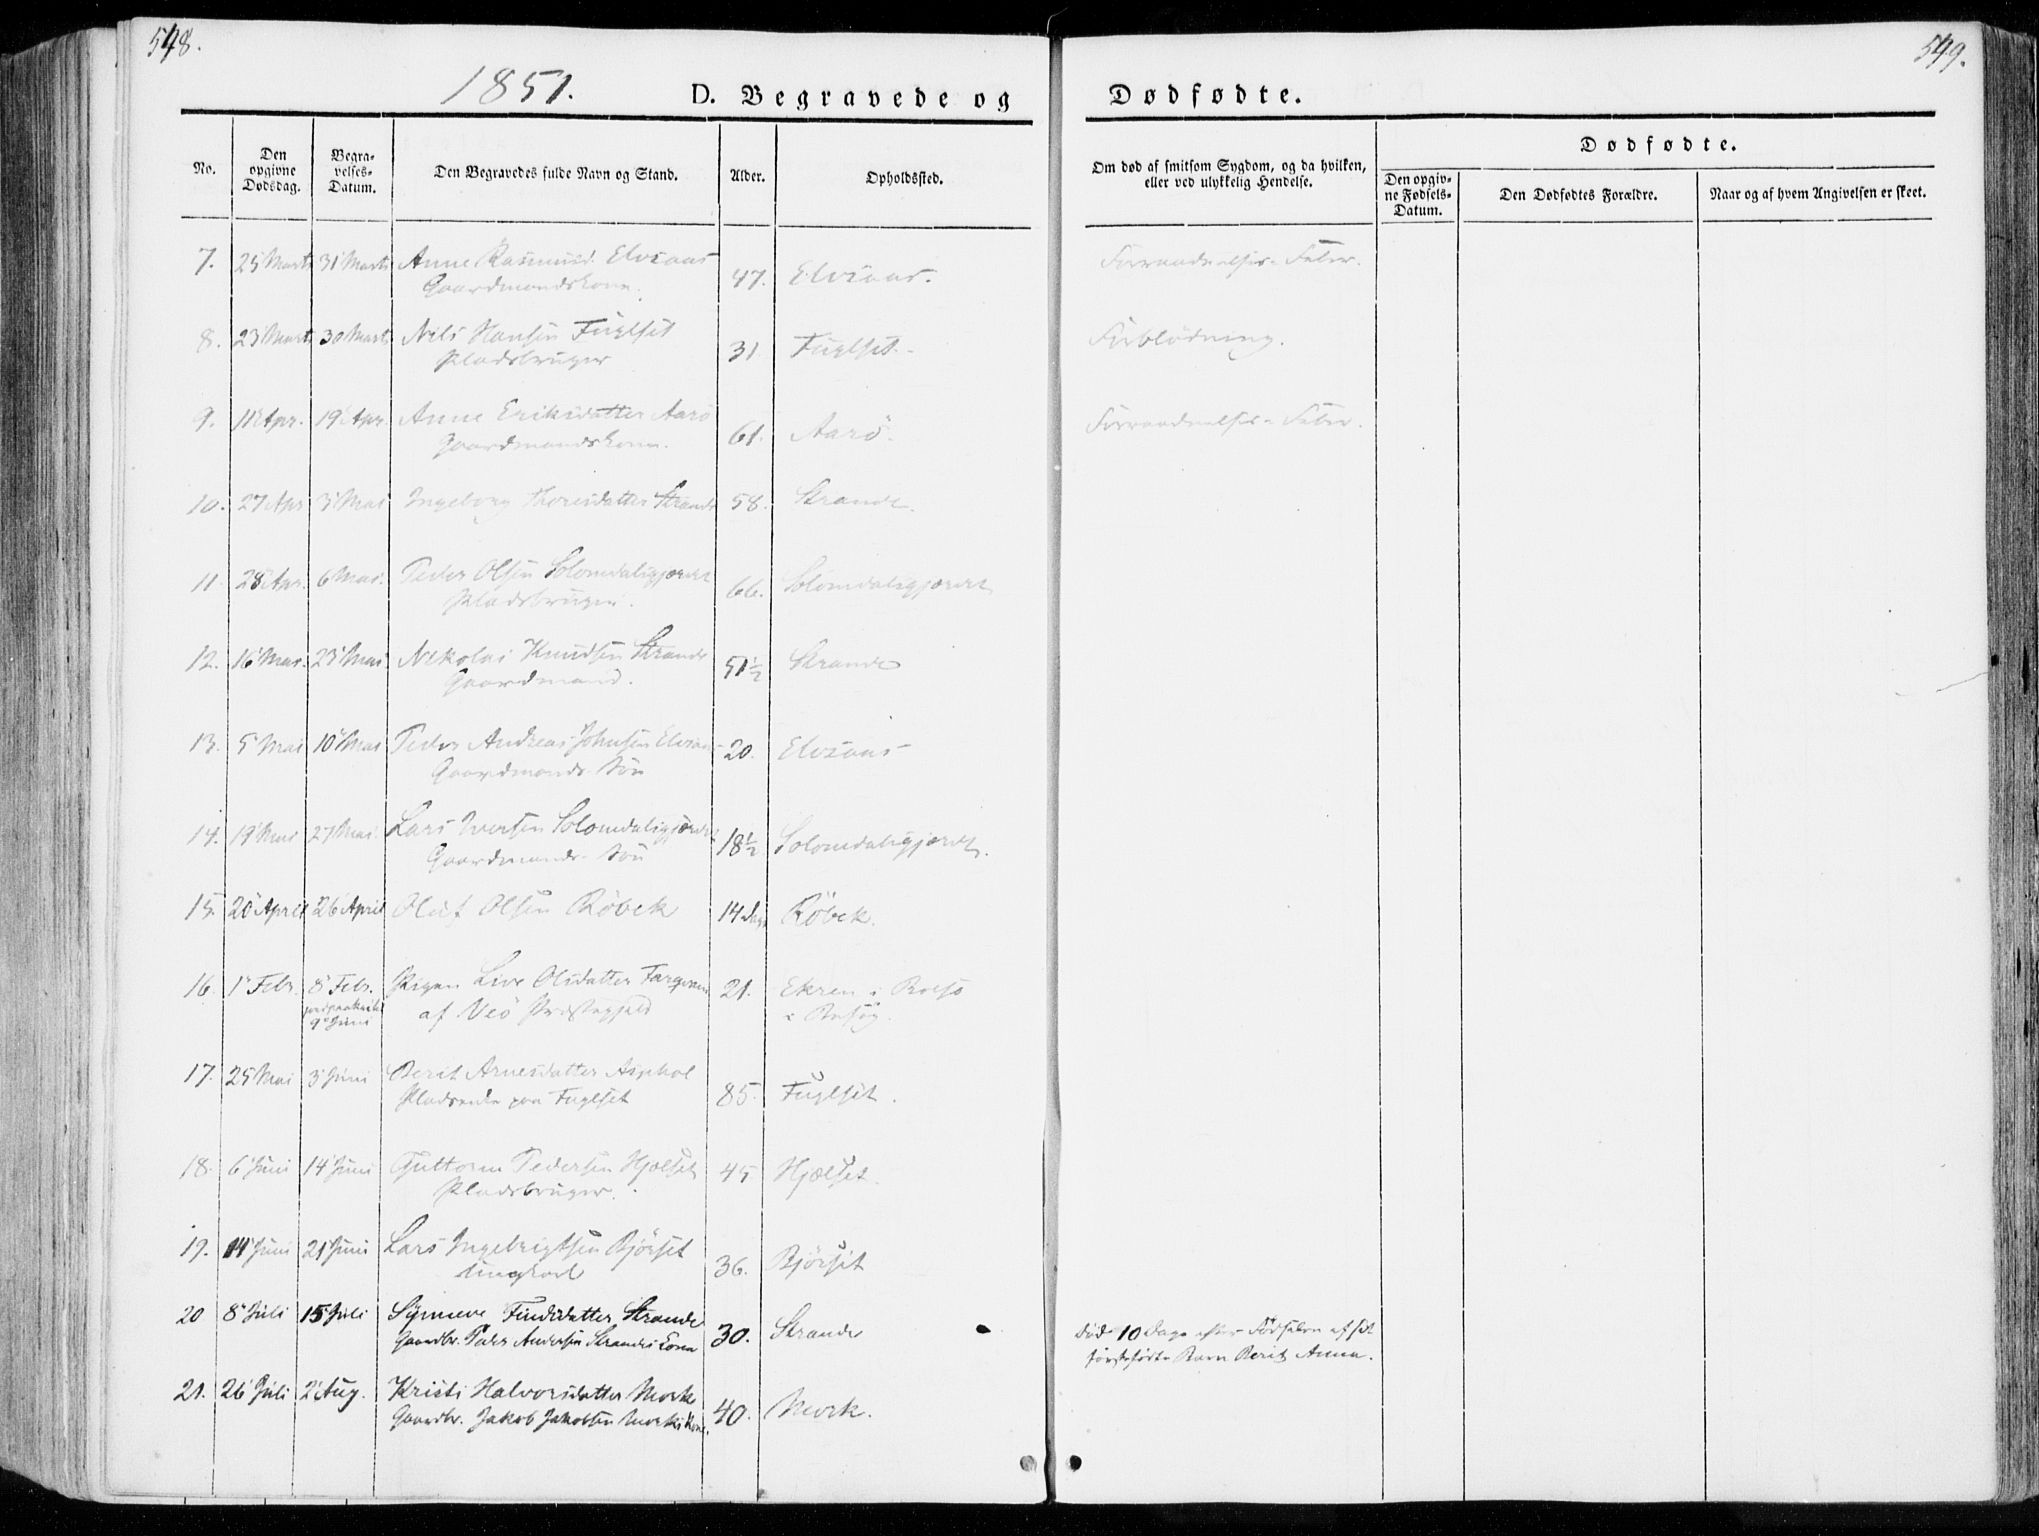 548.
549.
1851.
D. Begravede og Dødfødte.
No.
Den opgivne Dødsdag.
Begra-velses-Datum.
Den Begravedes fulde Navn og Stand.
Alder.
Opholdssted.
Om død af smitsom Sygdom, og da hvilken, eller ved ulykkelig Hendelse.
Dødfødte.
Den opgiv-ne Fødsels-Datum.
Den Dødfødtes Forældre.
Naar og af hvem Angivelsen er skeet.
7. 25 Marts 31 Marts Anne Rasmusd. Elvsaas 47. Elvsaas. Forraadnelses-Feber.
Gaardmandskone.
8. 23 Marts 30 Marts Nils Hansen Fuglset 31 Fuglset. Forblödning.
Pladsbruger
9. 11 Apr. 19 Apr. Anne Eriksdatter Aarö 61. Aarö. Forraadnelses-Feber.
Gaardmandskone.
10. 27 Apr 3 Mai Ingeborg Thoresdatter Strande 58. Strande.
11. 28 Apr. 6 Mai. Peder Olsen Solemdalsgjerdet 66. Solomdalsgjerdet
Pladsbruger.
12. 16 Mai. 23 Mai Nikolai Knudsen Strande 51½ Strande
Gaardmand.
13. 5 Mai 10 Mai Peder Andreas Johnsen Elvsaas 20. Elvsaas
Gaardmands Sön
14. 19 Mai 27 Mai. Lars Iversen Solomdalsgjerdet 18½ Solomdalsgjerdet.
Gaardmands Sön
15. 20 April 26 April Oluf Olsen Röbek 14 Dage Röbek.
16. 1 Febr. 8 Febr. Pigen Live Olsdatter 21. Ekren i Bolsö
9 Juni af Veö Præstegjeld i Besög.
17. 25 Mai 3 Juni Berit Arnesdatter Asphol 85. Fuglset.
paa Fuglset
18. 6 Juni 14 Juni Guttorm Pedersen Hjelset 45 Hjælset.
Pladsbruger.
19. 14 Juni 21 Juni Lars Ingebrigtsen Bjørset 36. Bjørset
Ungkarl
20 8 Juli 15 Juli Synneve Findsdatter Strande 30. Strande Död 10 Dage efter Födselen af sit
Gaardbr. Peder Andersen Strandes Kone förstefödte Barn Berit Anna.
21. 26 Juli 2 Aug. Kristi Halvorsdatter Mork 40. Mork.
Gaardbr. Jakob Jakobsen Morks Kone.